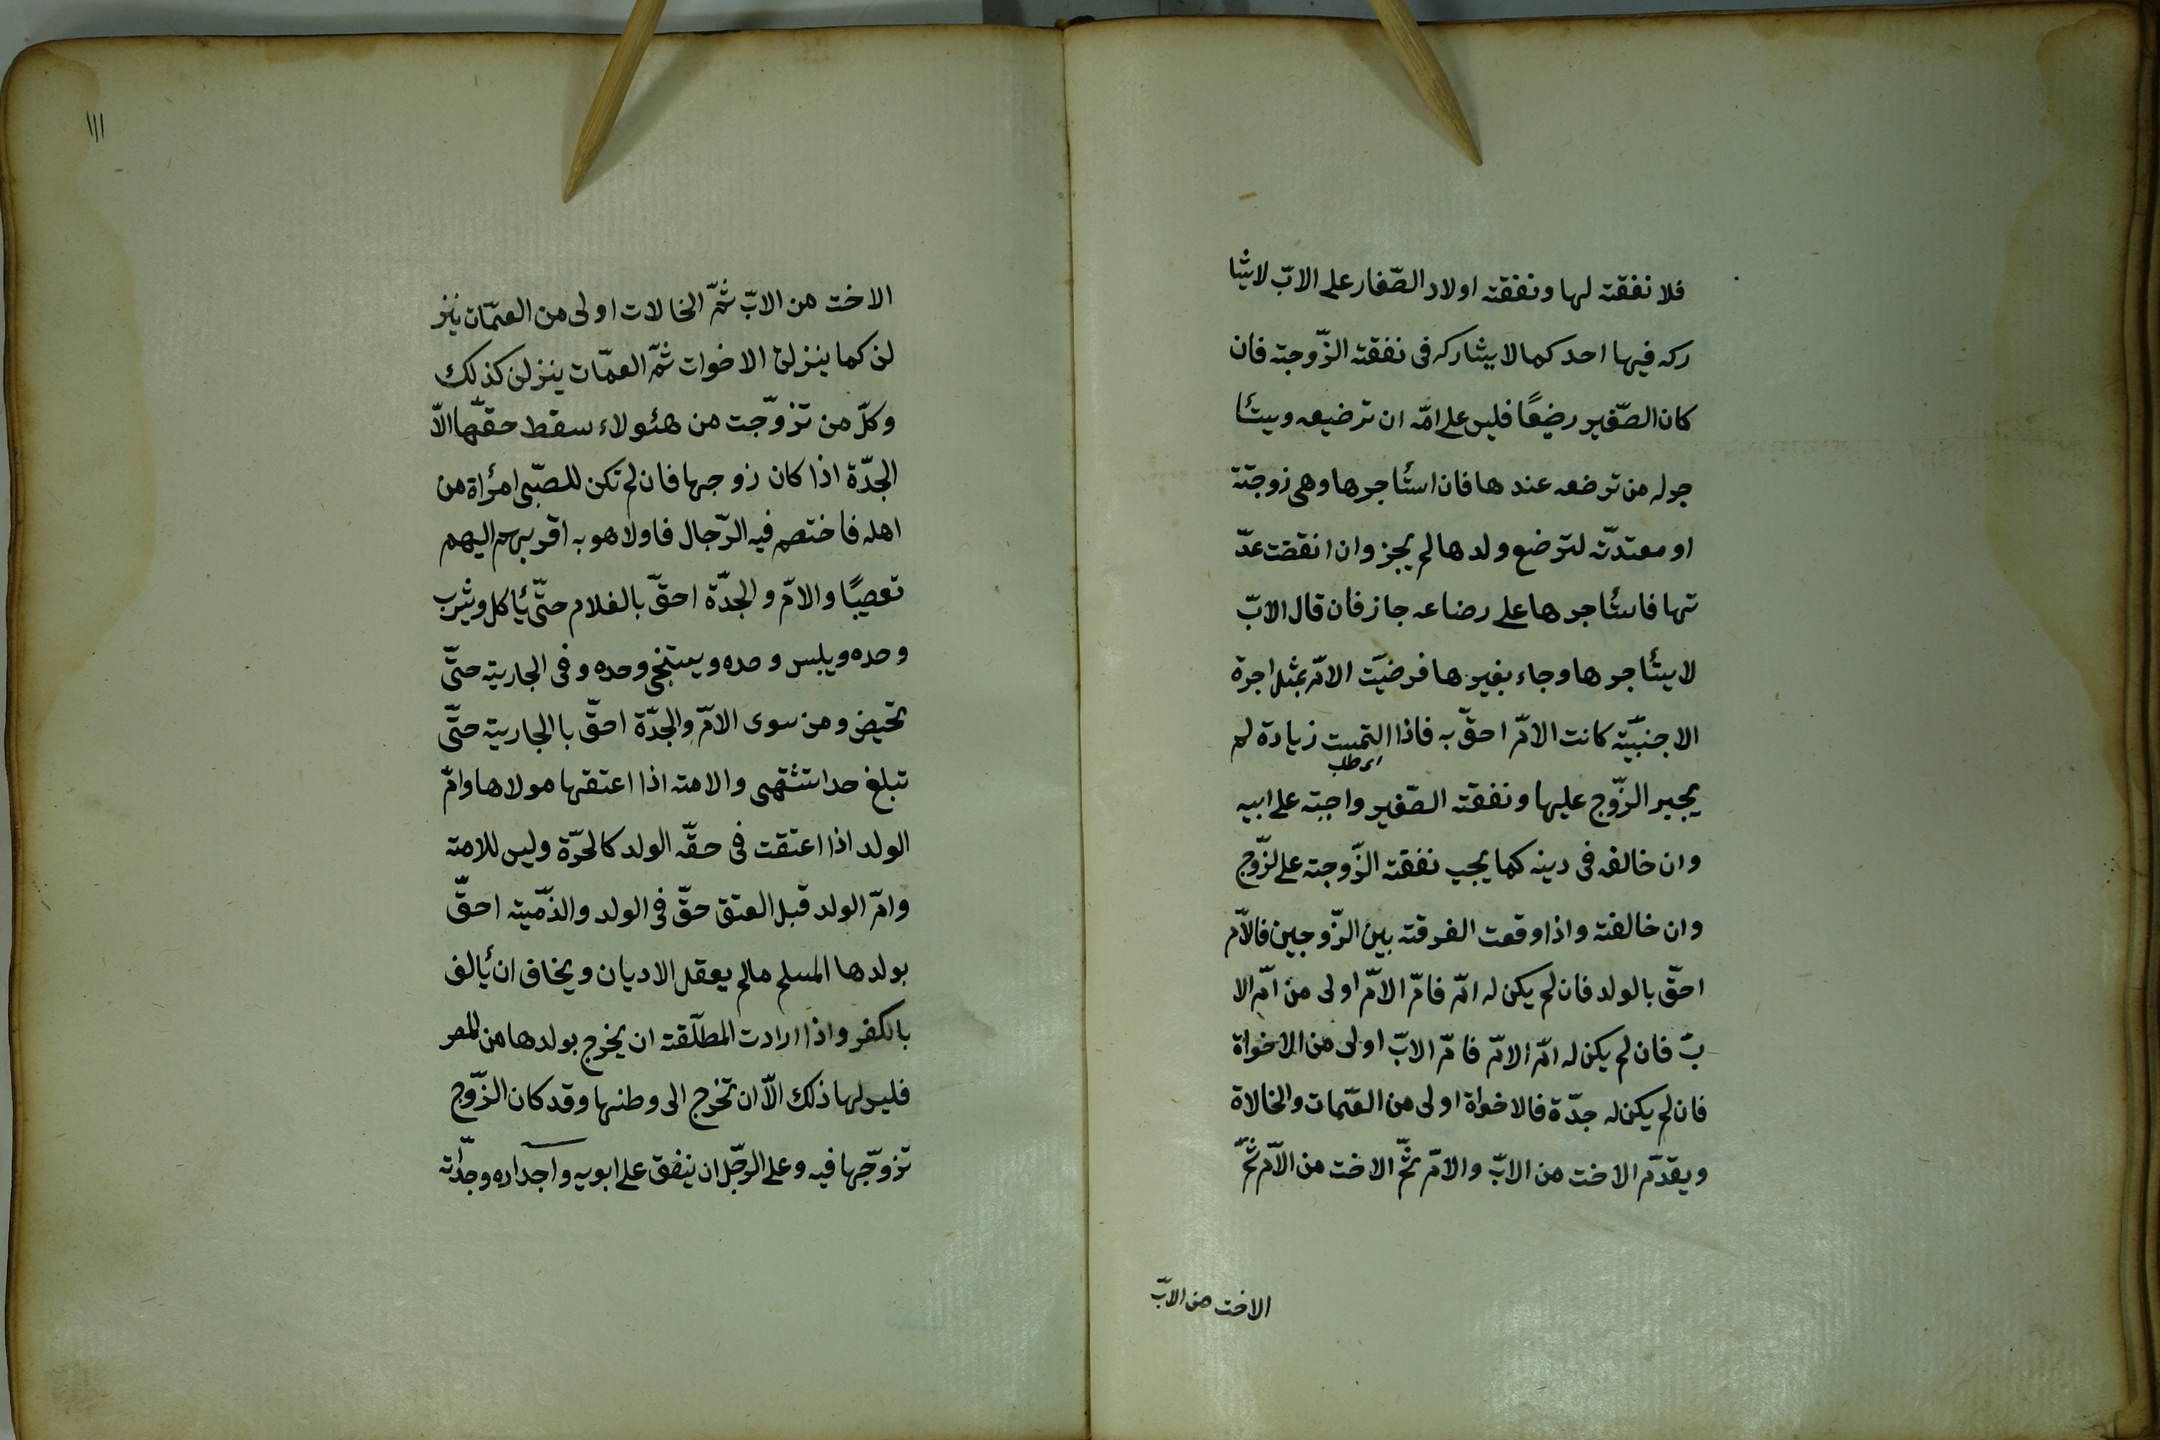 فلا نفقته لها ونفقته اولاد الصّغار على الابّ لايشا
ركه فيها احد كما لا يشاركه فى نفقته الزّوجته فان
كان الصّغير رضيعًا فليس على امّه ان ترضيعه ويستأ
جر له من ترضعه عندها فان استأجرها وهى زوجتة
او معتدّته لترضع ولدها لم يجز وان انقضت عدّ
تها فاستأجرها على رضاعه جاز فان قال الابّ
لا يستأجرها وجاء بغيرها فرضيّت الامّ بمثل اجرة
الاجنبيّته كانت الامّ احقّ به فاذا التمست زيادة لم
اى طلب
يجبر الزّوج عليها ونفقته الصّغير واجبته على ابيه
وان خالفه فى دينه كما يجب نفقته الزّوجته على لزّوج
وان خالفته واذا وقعت الفرقته بين الزّوجين فالاّم
احقّ بالولد فان لم يكن له امّ فامّ الامّ اولى من امّ الا
بّ فان لم يكن له امّ الامّ فامّ الابّ اولى من الاخواة
فان لم يكن له جدّة فالاخواة اولى من العمّات والخالاة
ويقدّم الاخت من الابّ والامّ ثمّ الاخت من الاّم ثمّ
الاخت من الابّ
١١١
الاخت من الابّ ثمّ الخالات اولى من العمّات ينز
لن كما ينزلن الاخوات ثمّ العمّات ينزلن كذلك
وكلّ من تزوّجت من هئولاء سقط حقّها الاّ
الجدّة اذا كان زوجها فان لم تكن للصّبى امرأة من
اهله فاختصم فيه الرّجال فاولاهو به اقربهم اليهم
تعصيبًا والامّ والجدّة احقّ بالغلام حتّى يأكل ويشرب
وحده ويلبس وحده ويستنجى وحده وفى الجاريته حتّى
تحيض ومن سوى الامّ والجدّة احقّ با الجاريته حتّى
تبلغ حدا تشتهى والامته اذا اعتقها مولاها وامّ
الولد اذا اعتقت فى حقّه الولد كالحرّة وليس للامته
وامّ الولد قبل العتق حقّ فى الولد والذّميّته احقّ
بولدها المسلم مالم يعقل الاديان ويخاف ان يألف
بالكفر واذا ارادت المطلّقته ان يخرج بولدها من المصر
فليس لها ذلك الاّ ان تخرج الى وطنها وقد كان الزّوج
تزوّجها فيه وعلى الرجّل ان ينفق على ابويه واجداره وجدّاته